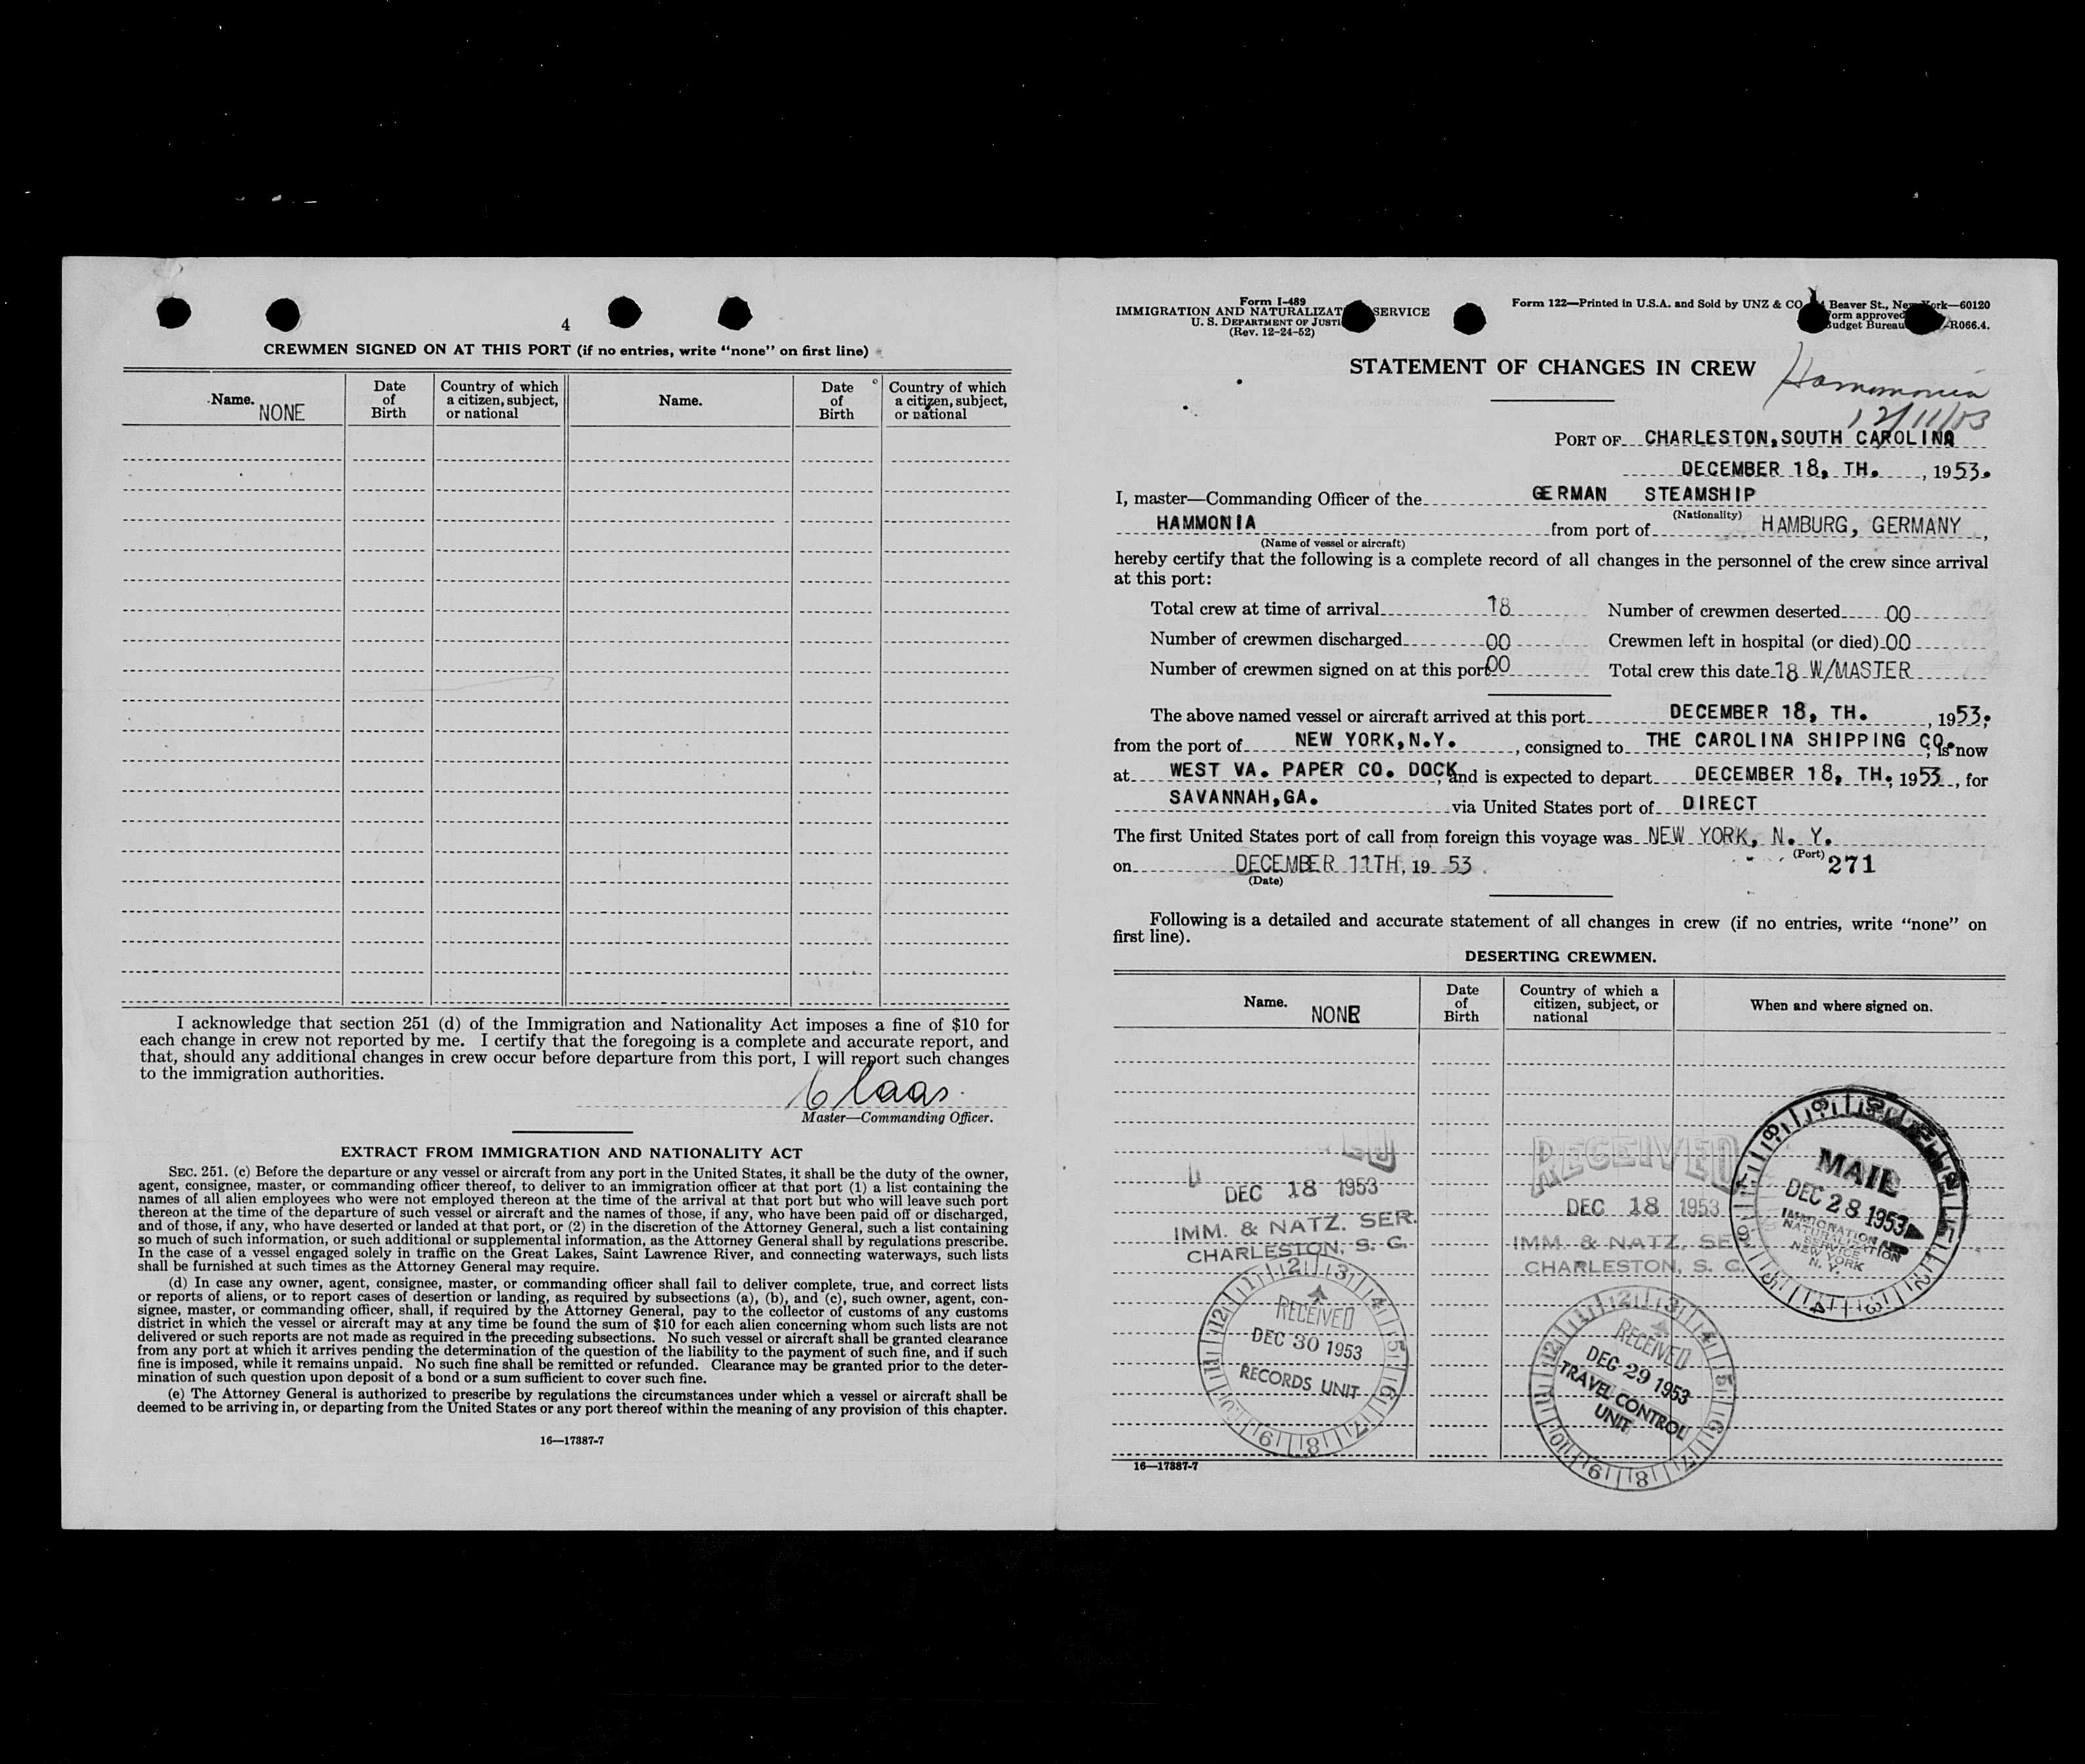 4
CREWMEN SIGNED ON AT THIS PORT (if no entries, write “none” on first line)
Name. NONE
Date of Birth
Country of which a citizen, subject, or national
Name.
Date of Birth
Country of which a citizen, subject, or national
I acknowledge that section 251 (d) of the Immigration and Nationality Act imposes a fine of $10 for
each change in crew not reported by me. I certify that the foregoing is a complete and accurate report, and
that, should any additional changes in crew occur before departure from this port, I will report such changes
to the immigration authorities.
Claas.
Master—Commanding Officer.
EXTRACT FROM IMMIGRATION AND NATIONALITY ACT
SEC. 251. (c) Before the departure or any vessel or aircraft from any port in the United States, it shall be the duty of the owner,
agent, consignee, master, or commanding officer thereof, to deliver to an immigration officer at that port (1) a list containing the
names of all alien employees who were not employed thereon at the time of the arrival at that port but who will leave such port
thereon at the time of the departure of such vessel or aircraft and the names of those, if any, who have been paid off or discharged,
and of those, if any, who have deserted or landed at that port, or (2) in the discretion of the Attorney General, such a list containing
so much of such information, or such additional or supplemental information, as the Attorney General shall by regulations prescribe.
In the case of a vessel engaged solely in traffic on the Great Lakes, Saint Lawrence River, and connecting waterways, such lists
shall be furnished at such times as the Attorney General may require.
(d) In case any owner, agent, consignee, master, or commanding officer shall fail to deliver complete, true, and correct lists
or reports of aliens, or to report cases of desertion or landing, as required by subsections (a), (b), and (c), such owner, agent, con-
signee, master, or commanding officer, shall, if required by the Attorney General, pay to the collector of customs of any customs
district in which the vessel or aircraft may at any time be found the sum of $10 for each alien concerning whom such lists are not
delivered or such reports are not made as required in the preceding subsections. No such vessel or aircraft shall be granted clearance
from any port at which it arrives pending the determination of the question of the liability to the payment of such fine, and if such
fine is imposed, while it remains unpaid. No such fine shall be remitted or refunded. Clearance may be granted prior to the deter-
mination of such question upon deposit of a bond or a sum sufficient to cover such fine.
(e) The Attorney General is authorized to prescribe by regulations the circumstances under which a vessel or aircraft shall be
deemed to be arriving in, or departing from the United States or any port thereof within the meaning of any provision of this chapter.
16—17387-7
Form I-489
IMMIGRATION AND NATURALIZAT SERVICE
U. S. DEPARTMENT OF JUSTI
(Rev. 12-24-52)
Form 122—Printed in U.S.A. and Sold by UNZ & CO Beaver St., New York—60120
orm approved
udget Bureau -R066.4.
STATEMENT OF CHANGES IN CREW
Hammonia
12/11/53
PORT OF CHARLESTON,SOUTH CAROLINA
DECEMBER 18, TH. , 1953.
I, master—Commanding Officer of the GERMAN STEAMSHIP
(Nationality)
HAMMONIA from port of HAMBURG, GERMANY ,
(Name of vessel or aircraft)
hereby certify that the following is a complete record of all changes in the personnel of the crew since arrival
at this port:
Total crew at time of arrival 18 Number of crewmen deserted 00
Number of crewmen discharged 00 Crewmen left in hospital (or died) 00
Number of crewmen signed on at this port 00 Total crew this date 18 W/MASTER
The above named vessel or aircraft arrived at this port DECEMBER 18, TH. , 1953;
from the port of NEW YORK,N.Y. , consigned to THE CAROLINA SHIPPING CO. ; is now
at WEST VA. PAPER CO. DOCK, and is expected to depart DECEMBER 18, TH, 1953 , for
SAVANNAH,GA. via United States port of DIRECT
The first United States port of call from foreign this voyage was NEW YORK, N. Y.
(Port)
on DECEMBER 11TH, 19 53 .
(Date)
271
Following is a detailed and accurate statement of all changes in crew (if no entries, write “none” on
first line).
DESERTING CREWMEN.
Name. NONE
Date of Birth
Country of which a citizen, subject, or national
When and where signed on.
DEC 18 1953
IMM. & NATZ. SER.
CHARLESTON, S. C.
RECEIVED
DEC 18 1953
IMM. & NATZ. SE
CHARLESTON, S. C.
MAIL
DEC 28 1953
IMMIGRATION AND
NATURALIZATION
SERVICE
NEW YORK
N. Y.
RECEIVED
DEC 30 1953
RECORDS UNIT
RECEIVED
DEC 29 1953
TRAVEL CONTROL
UNIT
16—17387-7